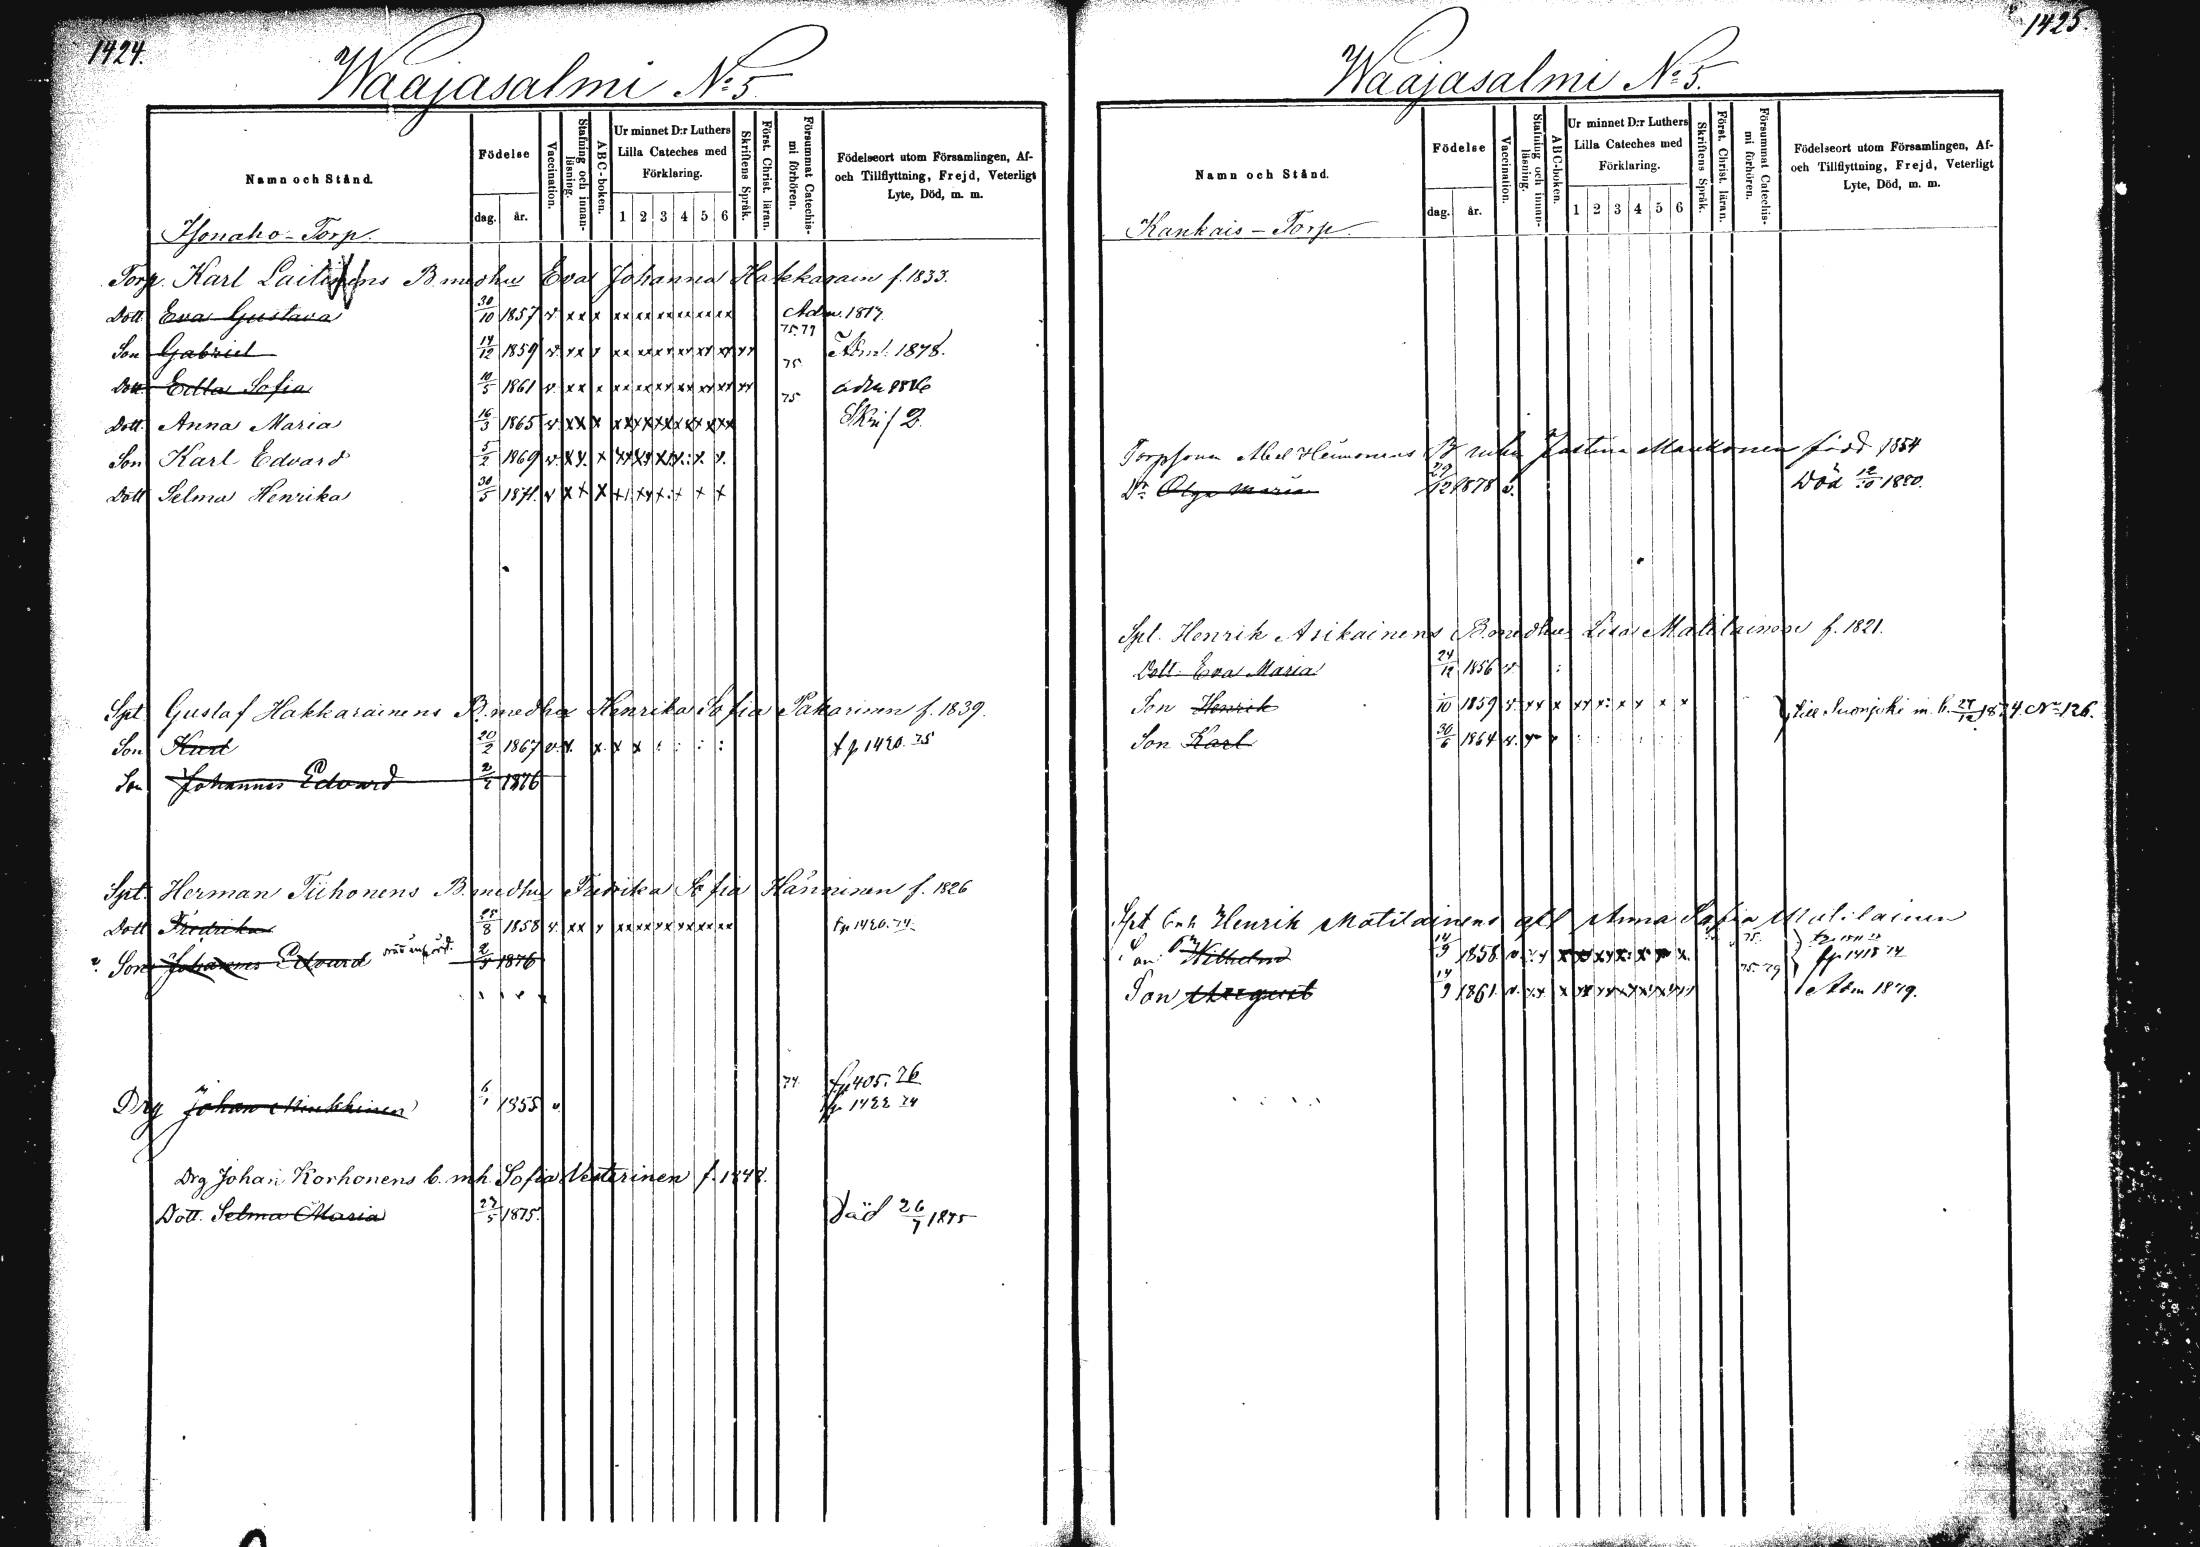 1424.
Waajasalmi No. 5.
Namn och Stånd.
Födelse
dag.
år.
Vaccination.
Stafning och innan-läsning.
ABC-boken.
Ur minnet D:r Luthers
Lilla Cateches med
Förklaring.
1 2 3 4 5 6
Skriftens Språk.
Först. Christ. läran.
Försummat Catechis-
mi förhören.
Födelseort utom Församlingen, Af-
och Tillflyttning, Frejd, Veterligt
Lyte, Död, m. m.
Isonaho-Torp.
Torp. Karl Laitinens B medhu Eva Johanna Hakkarain f. 1833.
Dott. Eva Gustava 30/10 1857 v. Adm. 1877
75.77
Son Gabriel 14/12 1859 v. Adm. 1878.
75
Dott. Edla Sofia 10/5 1861 v. adm 1876
75
Dott. Anna Maria 16/3 1865 v. Skrif 2.
Son Karl Edvard 5/2 1869 v.
Dott Selma Henrika 30/5 1871. v
Spt Gustaf Hakkarainens B. medhu Henrika Sofia Pakarinen f. 1839.
Son Karl 20/2 1867 v. fp 1420. 75
Son Johannes Edvard 2/2 1876
Spt. Herman Tiihonens B. medhu Fredrika Sofia Hänninen f. 1826
Dott Fredrika 25/8 1858 v. fp 1420. 74.
Son Johannes Edvard 2/3 1876
Drg Johan Minkkinen 6/1 1855 v. 74. fp 405. 76
fp 1422 74
Drg Johan Korhonens b. mh. Sofia Vesterinen f. 1848.
Dott. Selma Maria 27/5 1875. Död 26/7 1875
1425.
Waajasalmi No. 5.
Namn och Stånd.
Födelse
dag.
år.
Vaccination.
Stafning och innan-läsning.
ABC-boken.
Ur minnet D:r Luthers
Lilla Cateches med
Förklaring.
1 2 3 4 5 6
Skriftens Språk.
Först. Christ. läran.
Försummat Catechis-
mi förhören.
Födelseort utom Församlingen, Af-
och Tillflyttning, Frejd, Veterligt
Lyte, Död, m. m.
Kankais-Torp.
Torpsonen Abel Heimonens B mhu Justina Maukonen född 1854
Dr Olga Maria 29/12 1878 v. Död 12/10 1880.
Spl. Henrik Asikainens B. medhu Lisa Matilainen f. 1821.
Dott. Eva Maria 24/12 1856 v.
Son Henrik /10 1859 v. till Suonjoki m. b. 27/12 1874. No 126.
Son Karl 30/6 1864 v.
Spt Enk Henrik Matilainens afl Anna Sofia Matilainen
Son Wilhelm 14/9 1858 v. 75. fp 1415 74
Son 14/9 1861. v. 75.79 Adm 1879.